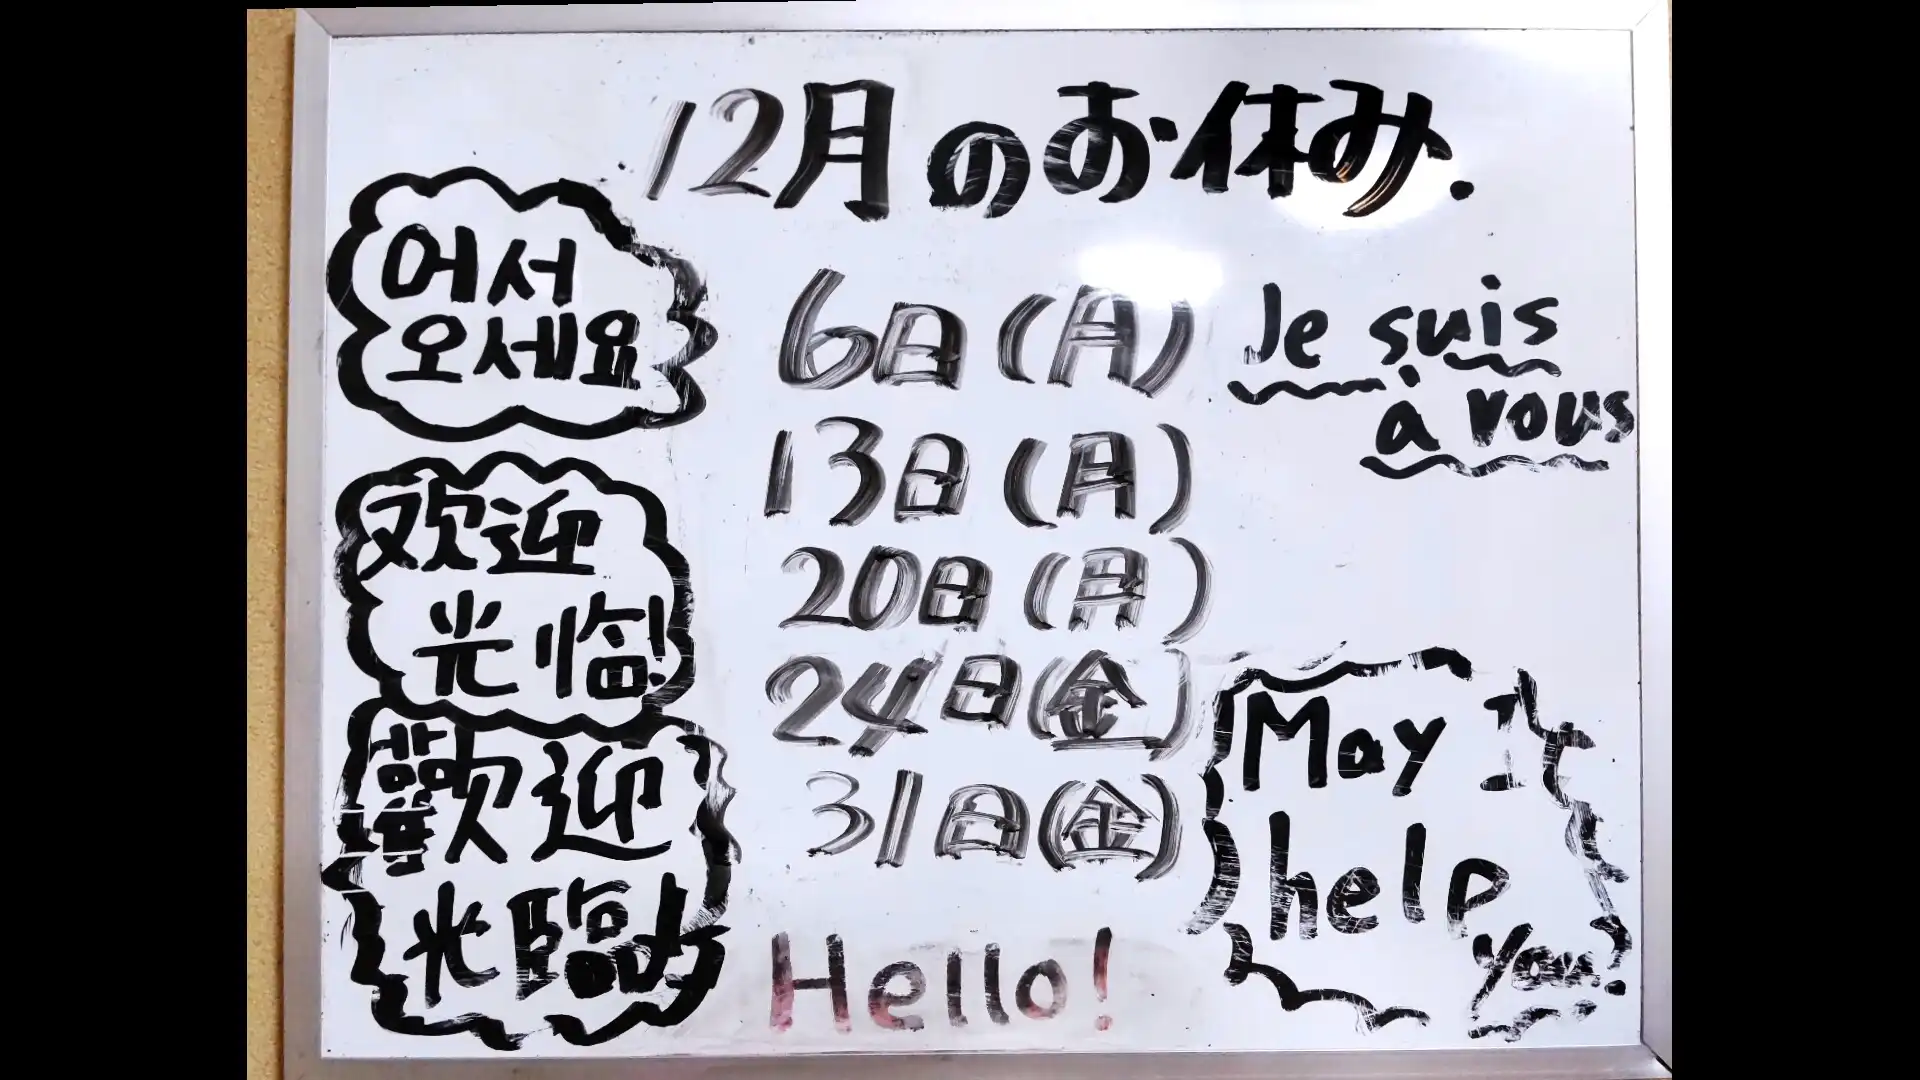 12月のお休み.
어서
오세요
欢迎
光临!
歡迎
光臨!
6日(月)
13日(月)
20日(月)
24日(金)
31日(金)
Hello!
Je suis
à vous
May I
help
you!